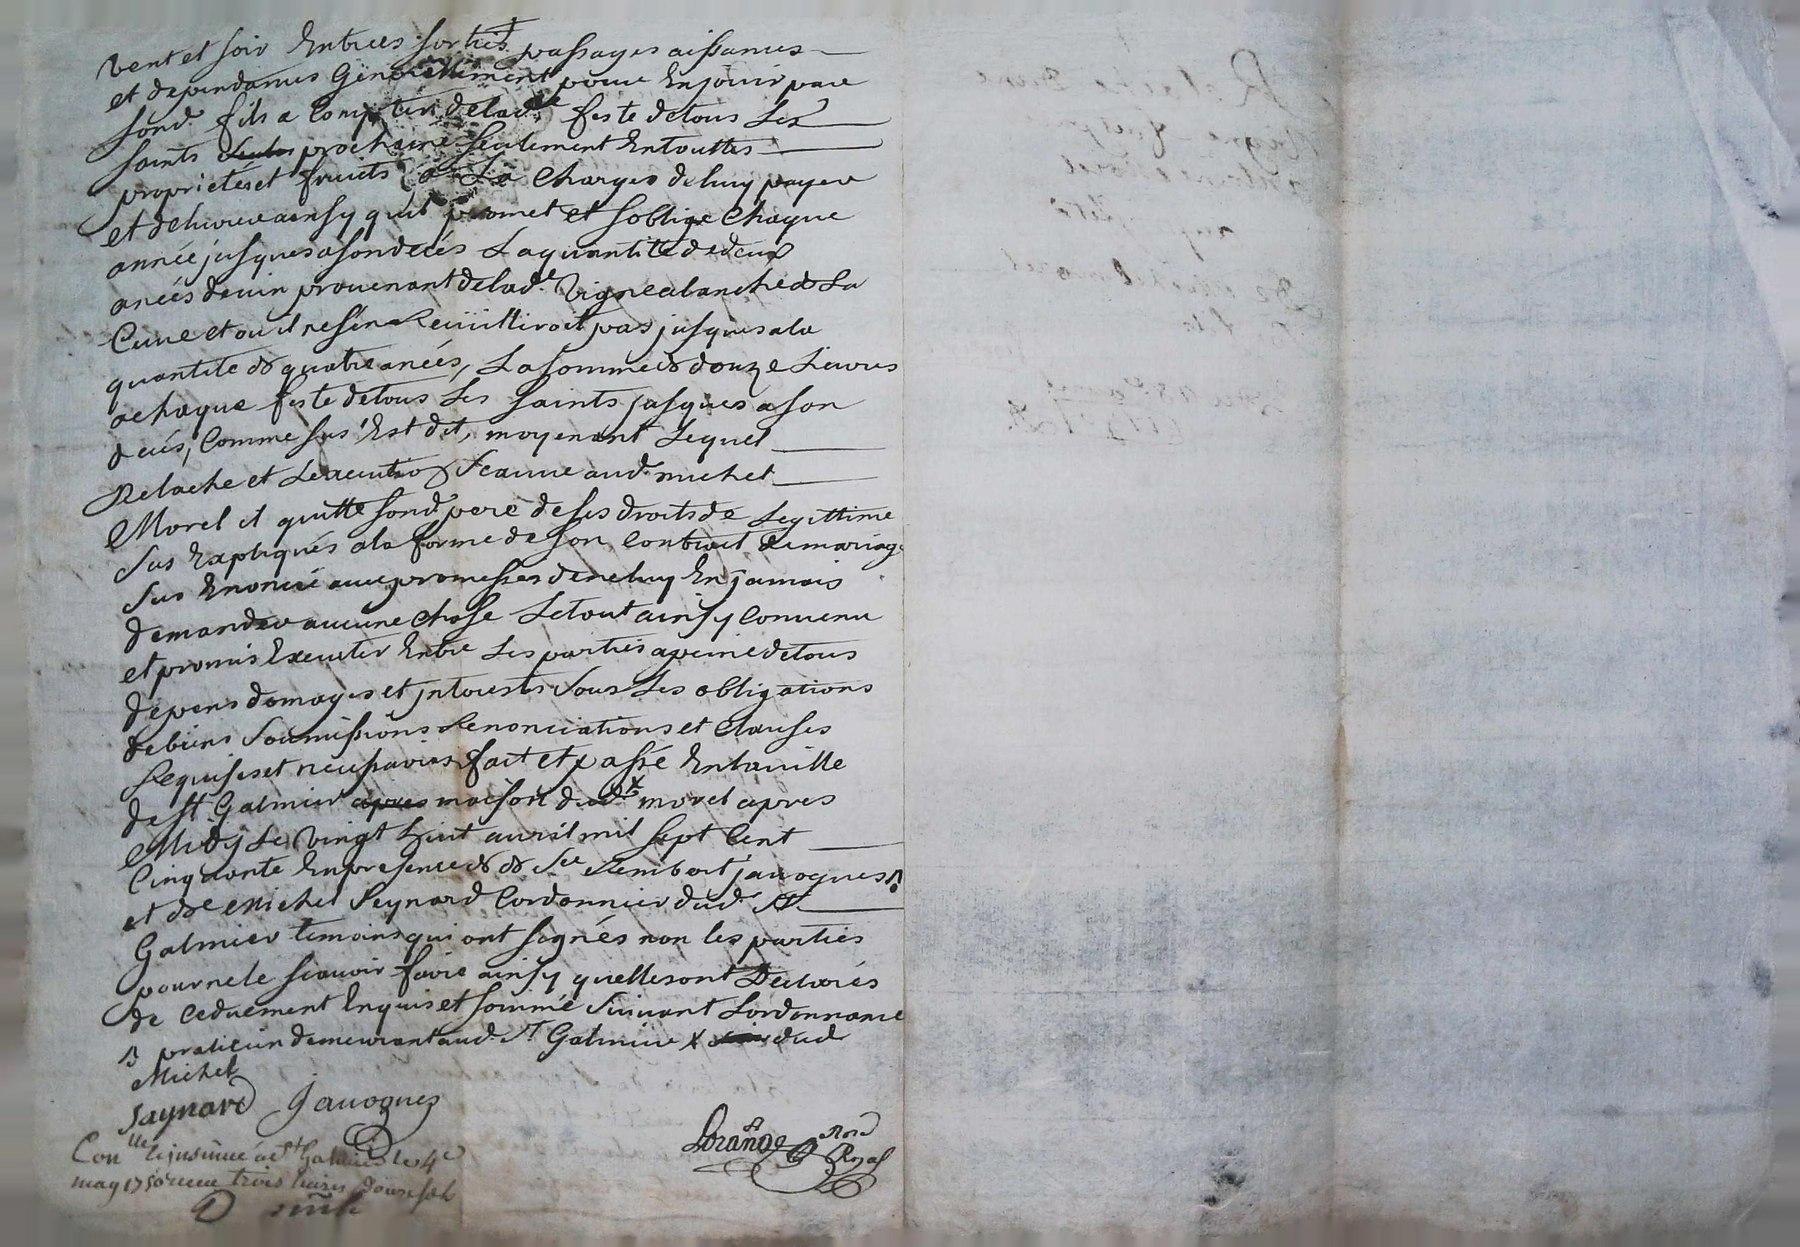 vent et soir Entrées sorties passages aisances
et dependances Generallement pour En jouir par
sond. fils a Compter de lad.e feste de tous Les
saints prochaine seulement En touttes
proprietés et fruits a La Charges de luy payer
et delivrer ainsy quil promet et soblige Chaque
année jusques a son decés La quantité de deux
anées de vin provenant de lad.e Vigne a lanche de La
Cuve et ou il ne sen Recuïlliroit pas jusques a la
quantité de quatre anées, La somme de douze Livres
a chaque feste de tous Les saints jusques a son
decés, Comme sus Est dit, moyenant Lequel
Relache et Lexecution d'Iceluy aud. michel
Morel il quitte sond. pere de ses droits de Legittime
sus Expliqués a la forme de son Contract de mariage
sus Enoncé avec promesses de ne luy En jamais
demander aucune Chose Le tout ainsy Convenu
et promis Executer Entre Les parties a peine de tous
depens domages et jnterests sous Les obligations
de biens soumissions Renonciations et Clauses
Requises et necessaires fait et passé En la ville
de St Galmier apres maison dud. x morel apres
Midy Le vingt huit avril mil sept Cent
Cinquante En presence de Sr Rembert javogues
et de Michel Peynard Cordonnier dud. St
Galmier temoins qui ont signés non les parties
pour ne le scavoir faire ainsy quelles ont Declarés
de ce duement Enquis et sommé suivant Lordonnance
praticien demeurant aud. St Galmier x dud
Michel
paynard Javogues
Lorange No.re Royal
Con.lle & insinué a St Galmier le 4e
may 1750 receu trois livres douze sols